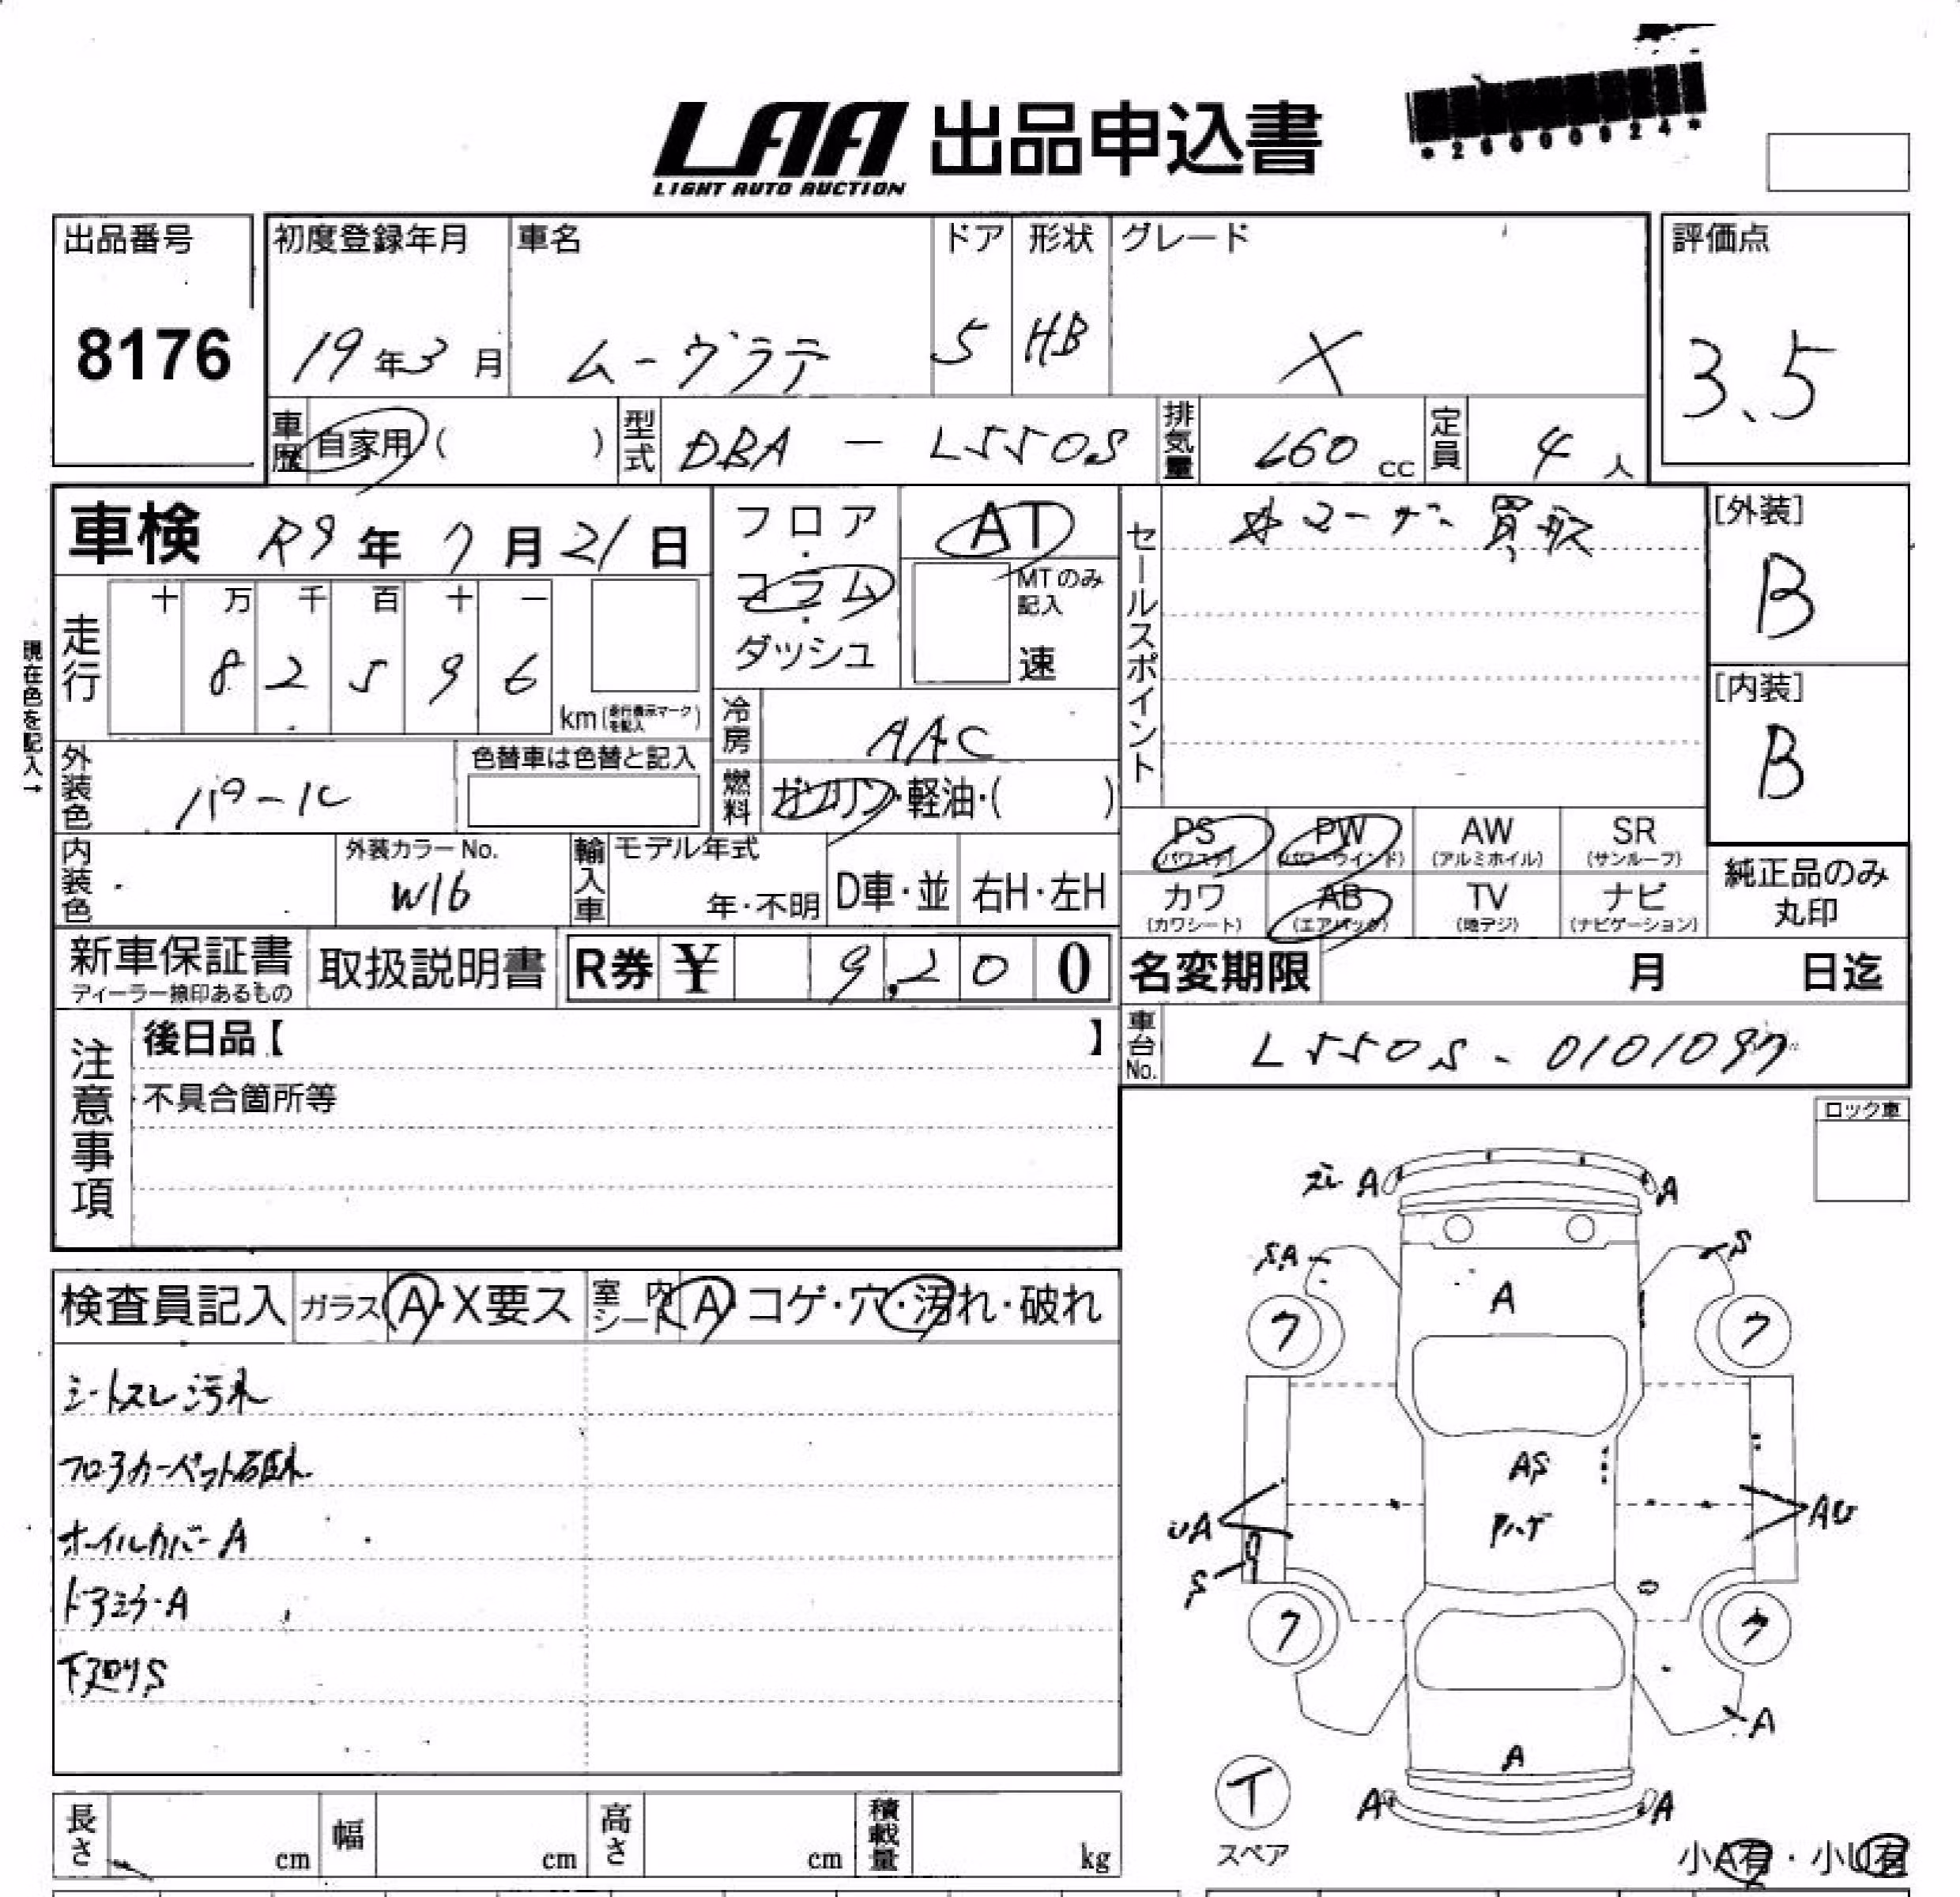 LAA 出品申込書
LIGHT AUTO AUCTION
*26000924*
出品番号 初度登録年月 車名 ドア 形状 グレード 評価点
8176 19年3月 ムーヴラテ 5 HB X 3.5
車歴 自家用( ) 型式 DBA - L550S 排気量 660 cc 定員 4 人
車検 R9年7月21日 フロア・コラム・ダッシュ AT
MTのみ記入 速
セールスポイント ☆ユーザー買取
[外装] B
[内装] B
現在色を記入→
走行 十 万 千 百 十 一
8 2 5 9 6 km(走行表示マークを記入)
冷房 AAC
外装色 パール 色替車は色替と記入
燃料 ガソリン・軽油・( )
PS (パワステ) PW (パワーウインド) AW (アルミホイル) SR (サンルーフ)
カワ (カワシート) AB (エアバック) TV (地デジ) ナビ (ナビゲーション)
純正品のみ丸印
内装色 外装カラーNo. W16 輸入車 モデル年式 年・不明 D車・並 右H・左H
新車保証書 ディーラー捺印あるもの 取扱説明書 R券 ¥ 9,200
名変期限 月 日迄
車台No. L550S - 0101097
注意事項
後日品【 】
不具合箇所等
ロック車
検査員記入 ガラス A・X要ス 室内シート A・コゲ・穴・汚れ・破れ
シートスレ汚れ
フロアカーペット破れ
ホイルカバーA
ドアミラーA
下廻りS
ズレ A A
SA S
A
ウ ウ
AS
UA AU
S
ウ ウ
A
A
A A
T
スペア
小A有・小U有
長さ cm 幅 cm 高さ cm 積載量 kg